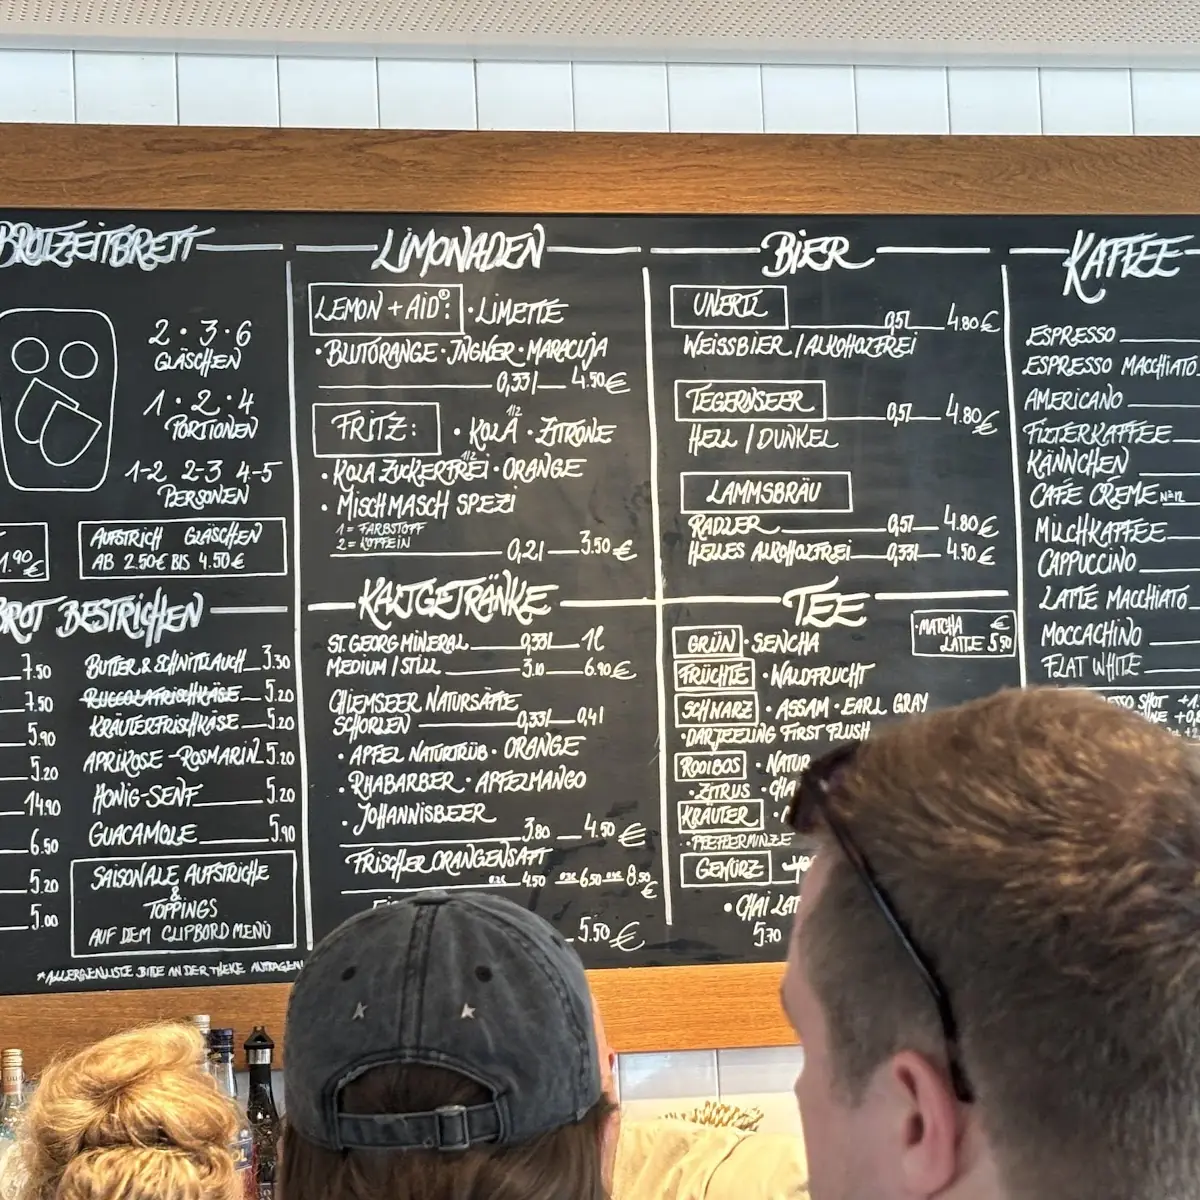 BROTZEITBRETT
2 · 3 · 6
GLÄSCHEN
1 · 2 · 4
PORTIONEN
1-2 2-3 4-5
PERSONEN
1.90 €
AUFSTRICH GLÄSCHEN
AB 2.50€ BIS 4.50€
BROT BESTRICHEN
7.50
7.50
5.90
5.20
14.90
6.50
5.20
5.00
BUTTER & SCHNITTLAUCH 3.30
RUCCOLAFRISCHKÄSE 5.20
KRÄUTERFRISCHKÄSE 5.20
APRIKOSE-ROSMARIN 5.20
HONIG-SENF 5.20
GUACAMOLE 5.90
SAISONALE AUFSTRICHE
&
TOPPINGS
AUF DEM CLIPBORD MENÜ
*ALLERGENLISTE BITTE AN DER THEKE ANFRAGEN!
LIMONADEN
LEMON + AID®: · LIMETTE
· BLUTORANGE · INGWER · MARACUJA
0,33l 4.50€
FRITZ: · KOLA 1/2 · ZITRONE
· KOLA ZUCKERFREI 1/2 · ORANGE
· MISCHMASCH SPEZI
1 = FARBSTOFF
2 = KOFFEIN
0,2l 3.50€
KALTGETRÄNKE
ST. GEORG MINERAL 0,33l 1l
MEDIUM / STILL 3.10 6.90€
CHIEMSEER NATURSÄFTE
SCHORLEN 0,33l 0,4l
· APFEL NATURTRÜB · ORANGE
· RHABARBER · APFELMANGO
· JOHANNISBEER
3.80 4.50€
FRISCHER ORANGENSAFT
4.50 6.50 8.50 €
5.50€
BIER
UNERTL 0,5l 4.80€
WEISSBIER / ALKOHOLFREI
TEGERNSEER 0,5l 4.80€
HELL / DUNKEL
LAMMSBRÄU
RADLER 0,5l 4.80€
HELLES ALKOHOLFREI 0,33l 4.50€
TEE
· MATCHA €
LATTE 5.50
GRÜN · SENCHA
FRÜCHTE · WALDFRUCHT
SCHWARZ · ASSAM · EARL GRAY
· DARJEELING FIRST FLUSH
ROOIBOS · NATUR
· ZITRUS
KRÄUTER
· PFEFFERMINZE
GEWÜRZ
· CHAI
5.70
KAFFEE
ESPRESSO
ESPRESSO MACCHIATO
AMERICANO
FILTERKAFFEE
KÄNNCHEN
CAFÉ CRÉME
MILCHKAFFEE
CAPPUCCINO
LATTE MACCHIATO
MOCCACHINO
FLAT WHITE
SHOT